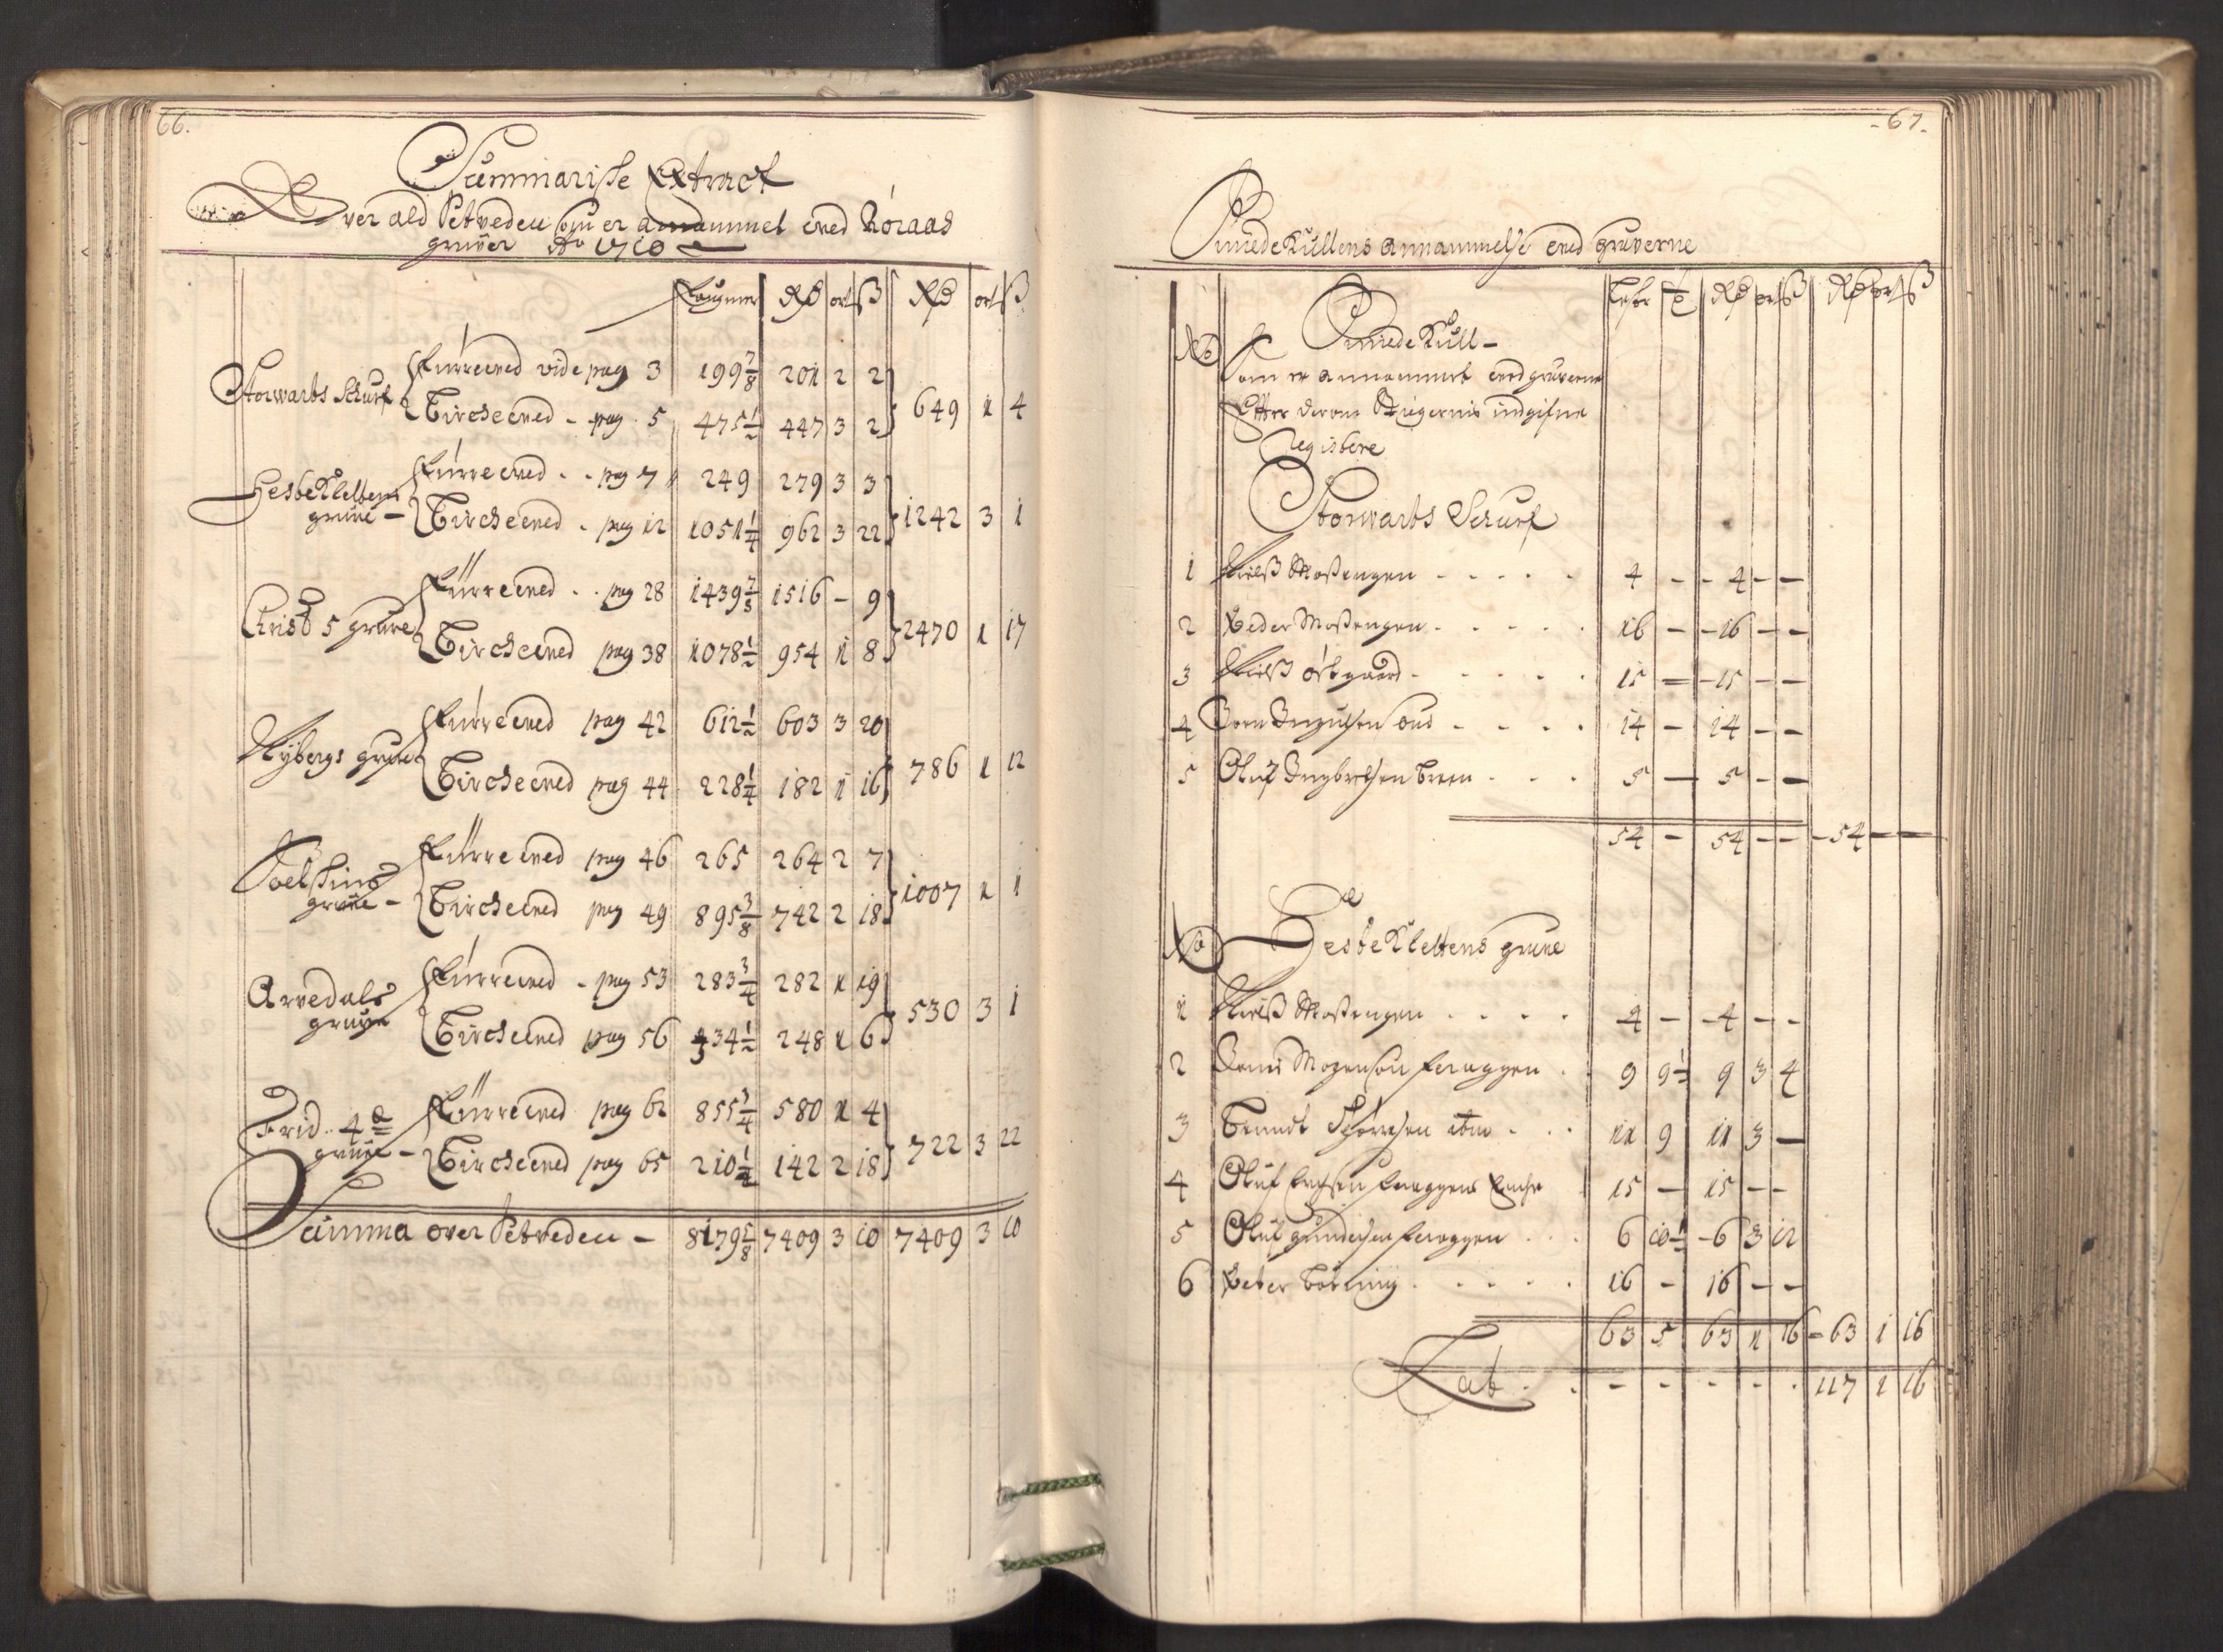 66.
Summariske Extract
Over ald Setveden som er annammet ved Röraas
gruver Ao 1710
Laugmer Rd ort ß Rd ort ß
Storwarts Schurf
Fürreved vide pag 3 199 7/8 201 2 2
Bircheved - pag. 5 475 1/2 447 3 2 649 1 4
Hesteklettens
gruve -
Fürreved - - pag 7 249 279 3 3
Bircheved - pag 12 1051 1/4 962 3 22 1242 3 1
Crist 5 gruve
Fürreved - - pag 28 1439 7/8 1516 - 9
Bircheved pag 38 1078 1/2 954 1 8 2470 1 17
Nybergs gruve
Fürreved pag 42 612 1/2 603 3 20
Bircheved pag 44 228 1/4 182 1 16 786 1 12
gruve -
Fürreved pag 46 265 264 2 7
Bircheved pag 49 895 3/8 742 2 18 1007 1 1
Arvedals
gruve
Fürreved - pag 53 283 3/4 282 1 19
Bircheved pag 56 334 1/2 248 1 6 530 3 1
Frid. 4de
gruve -
Fürreved pag 62 855 3/4 580 1 4
Bircheved pag 65 210 1/4 142 2 18 722 3 22
Summa over Setveden - 8179 5/8 7409 3 10 7409 3 10
- 67 -
Smedekullens annammelse ved gruverne
Lester Rd ort ß Rd ort ß
No Smede Kull -
Som er annammet ved gruverne
Efter derom Stigernis indgifne
Registere
Storwarts Schurf
1 Nielß Moßengen - - - - - 4 - - 4 - -
2 Peder Moßengen - - - - - 16 - - 16 - -
3 Nielß östgaard - - - - - 15 - - 15 - -
4 Joen - - - - 14 - 14 - -
5 Oluf Ingbretsen - - - 5 - 5 - -
54 - 54 - - - 54 - -
No Hesteklettens gruve
1 Nielß Moßengen - - - - 4 - - 4 - -
2 Jens Mogenson Feraggen - - 9 9 1/2 9 3 4
3 Bendt - - - 11 9 11 3 -
4 Oluf Feraggens 15 - 15 - -
5 Oluf Gundersen Feraggen - - - 6 10 1/2 - 6 3 12
6 Peter - - - - - - 16 - 16 - -
63 5 63 1 16 - 63 1 16
Lat - - - - - - - 117 1 16